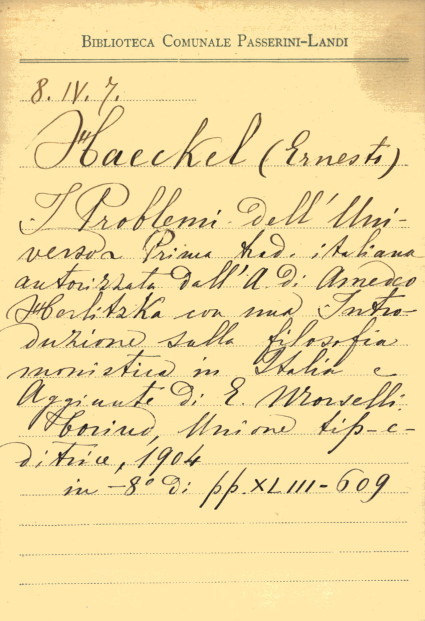 BIBLIOTECA COMUNALE PASSERINI-LANDI
8. IV. 7.
Haeckel (Ernesto)
I Problemi dell'Uni-
verso. Prima trad. italiana
autorizzata dall'A di Amedeo
Herlitzka con una Intro-
duzione sulla filosofia
monistica in Italia e
Aggiunte di E. Morselli.
Torino, Unione tip-e-
ditrice, 1904
in -8º di pp. XLIII-609